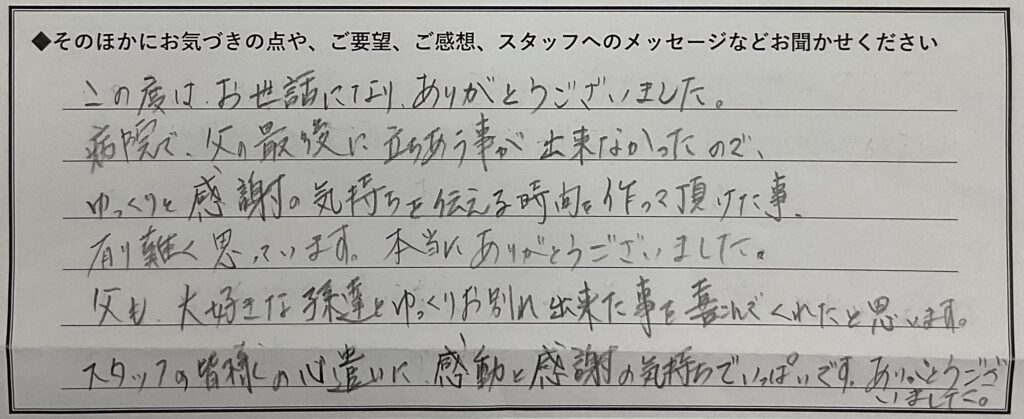 ◆そのほかにお気づきの点や、ご要望、ご感想、スタッフへのメッセージなどお聞かせください
この度は、お世話になり、ありがとうございました。
病院で、父の最後に立ちあう事が出来なかったので、
ゆっくりと感謝の気持ちを伝える時間を作って頂けた事、
有り難く思っています。本当にありがとうございました。
父も、大好きな孫達とゆっくりお別れ出来た事を喜こんでくれたと思います。
スタッフの皆様の心遣いに、感動と感謝の気持ちでいっぱいです。ありがとうござ
いました。